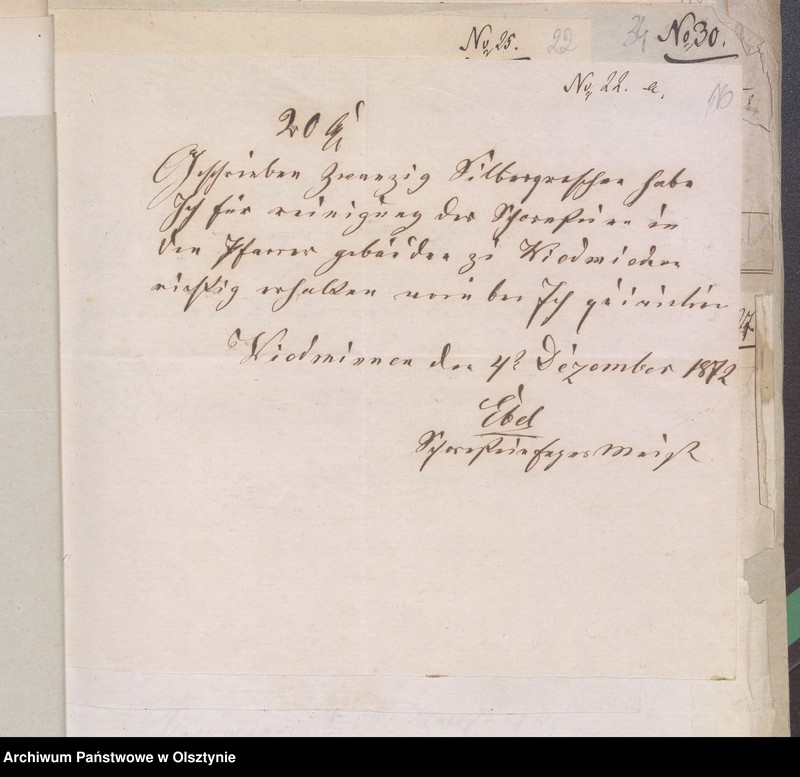 No 25. 22 34 No 30.
No 22. a.
20 Sg
Geschrieben Zwanzig Silbergroschen habe
Ich für reinigung der Schornsteine in
den Pfarrer gebäuden zu Widminnen
richtig erhalten worüber Ich quittire
Widminnen den 4t Dezember 1872
Ebel
Schornsteinfeger Meist
Archiwum Państwowe w Olsztynie